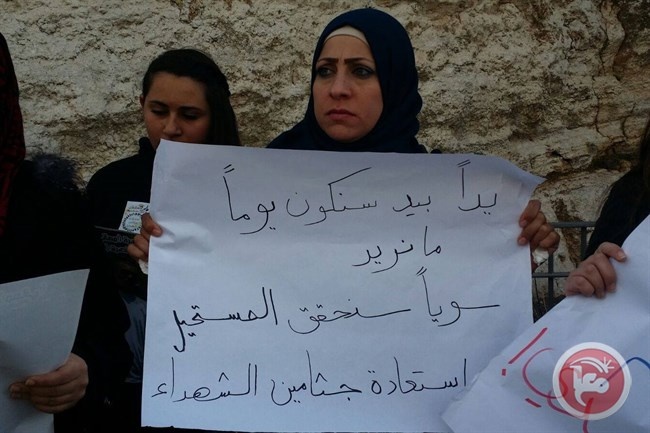 يداً بيد سنكون يوماً
ما نريد
سوياً سنحقق المستحيل
استعادة جثامين الشهداء
معا